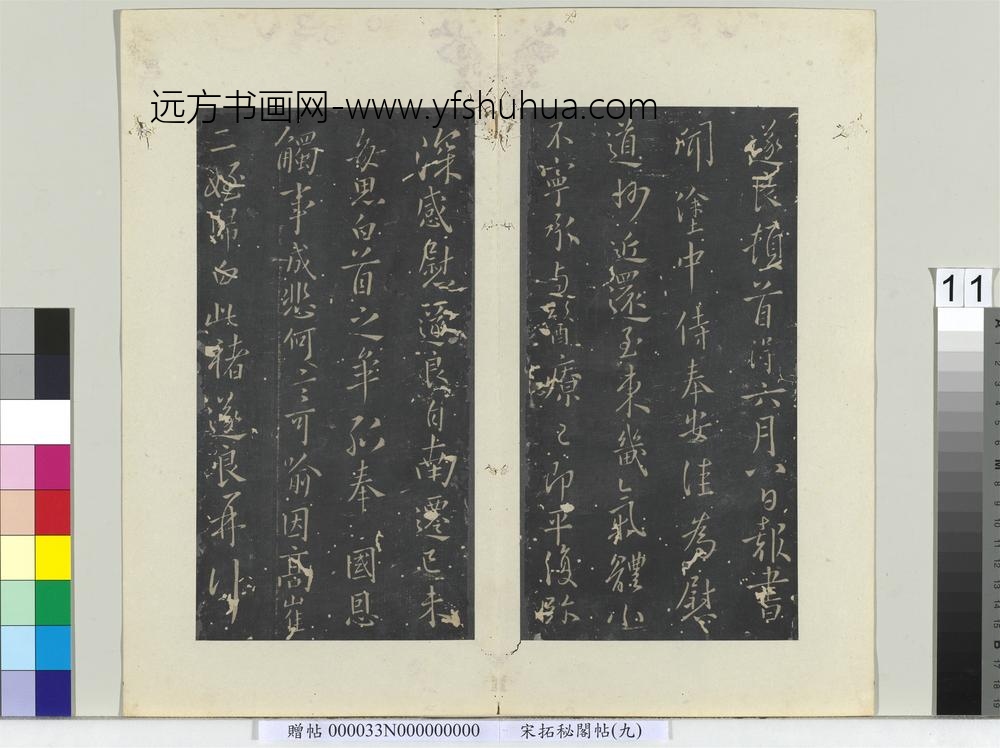 远方书画网-www.yfshuhua.com
遂良頓首得六月八日報書
聞塗中侍奉安佳為慰
道拙近還至來幾氣體
不寧承與醫療已即平復
深感慰遂良自南遷已來
每思白首之年孤奉國恩
觸事成悲何言可喻因高崔
二姪歸白此諸遂良再行
11
贈帖 000033N000000000 宋拓秘閣帖(九)